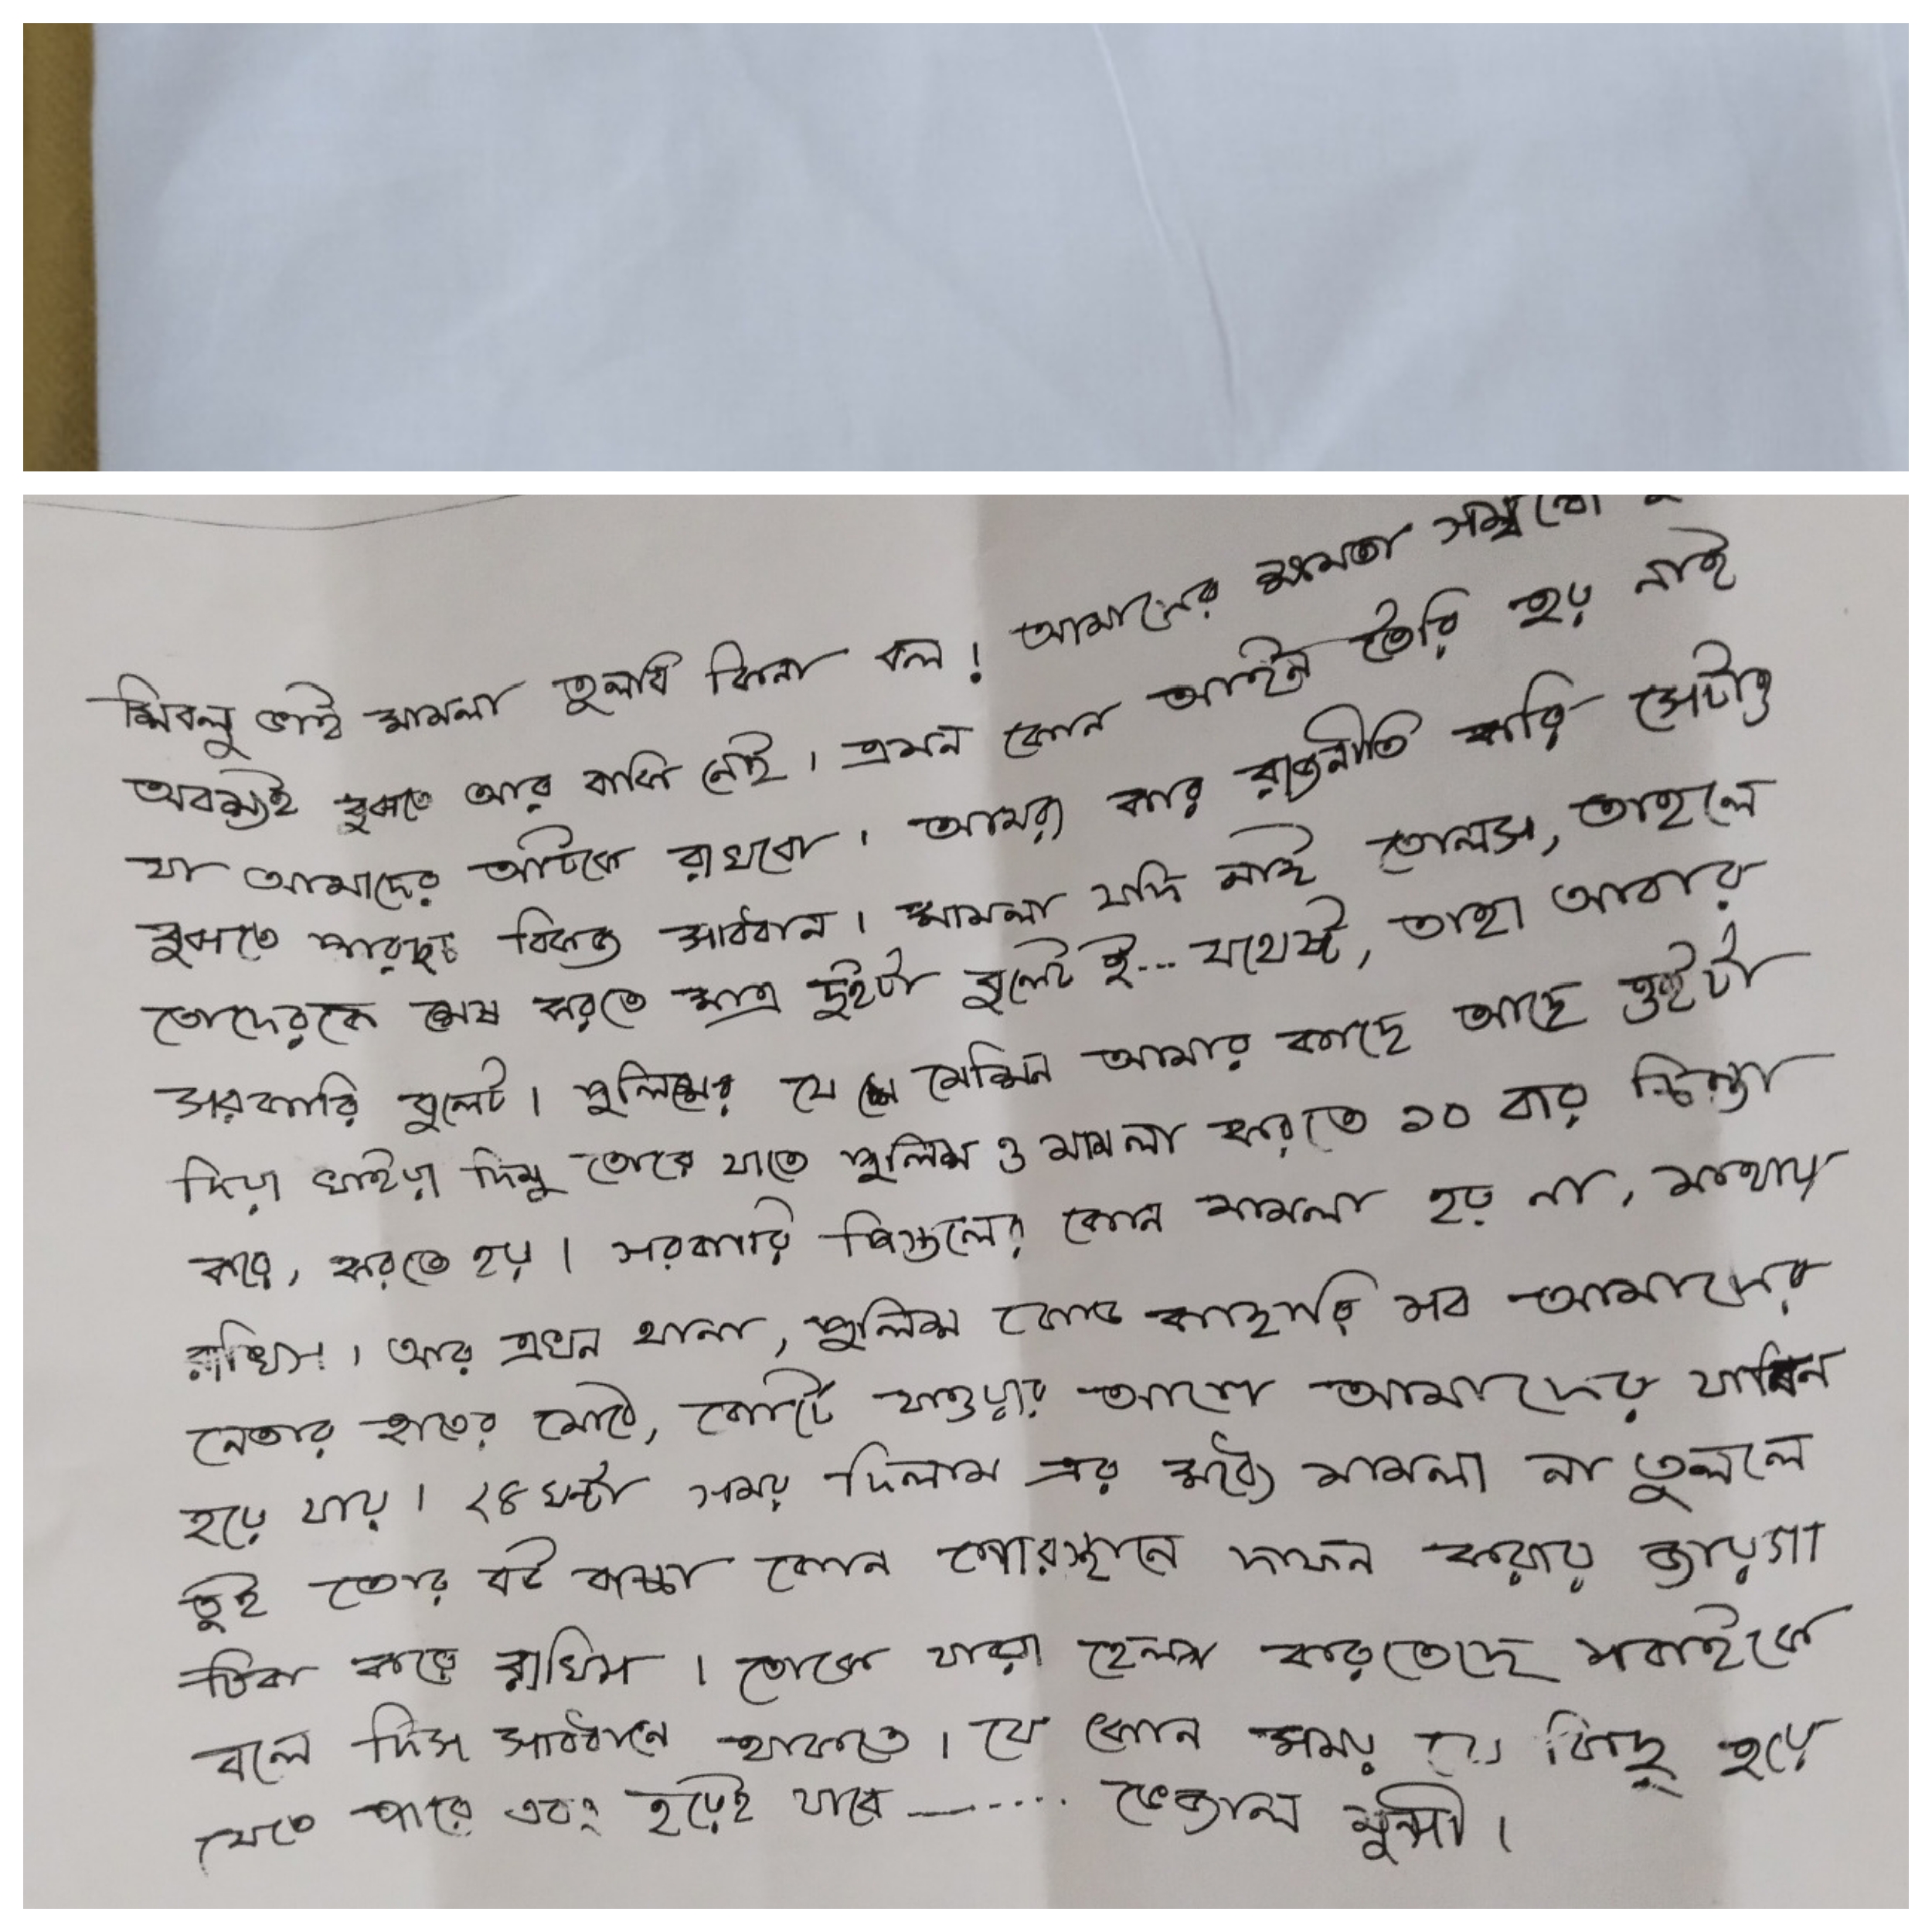 শিবলু ভাই মামলা তুলবি কিনা বল! আমাদের ক্ষমতা সম্বন্ধে
অবশ্যই বুঝতে আর বাকি নেই। এমন কোন আইন তৈরি হয় নাই
যা আমাদের আটকে রাখবো। আমরা কার রাজনীতি করি সেটাও
বুঝতে পারছত কিন্তু সাবধান। মামলা যদি নাই তোলস, তাহলে
তোদেরকে শেষ করতে মাত্র দুইটা বুলেট ই... যথেষ্ট, তাহা আবার
সরকারি বুলেট। পুলিশের যে মেশিন আমার কাছে আছে ওইটা
দিয়া খাইয়া দিমু তোরে যাতে পুলিশ ও মামলা করতে ১০ বার চিন্তা
করে, করতে হয়। সরকারি পিস্তলের কোন মামলা হয় না, মাথায়
রাখিস। আর এখন থানা, পুলিশ কোর্ট কাছারি সব আমাদের
নেতার হাতের মোঠে, কোর্টে যাওয়ার আগে আমাদের যামিন
হয়ে যায়। ২৪ ঘন্টা সময় দিলাম এর মধ্যে মামলা না তুললে
তুই তোর বউ বাচ্চা কোন গোরস্থানে দাফন করার জায়গা
ঠিক করে রাখিস। তোকে যারা হেলপ করতেছে সবাইকে
বলে দিস সাবধানে থাকতে। যে কোন সময় যে কিছু হয়ে
যেতে পারে এবং হয়েই যাবে —..... ভেজাল মুন্সী।